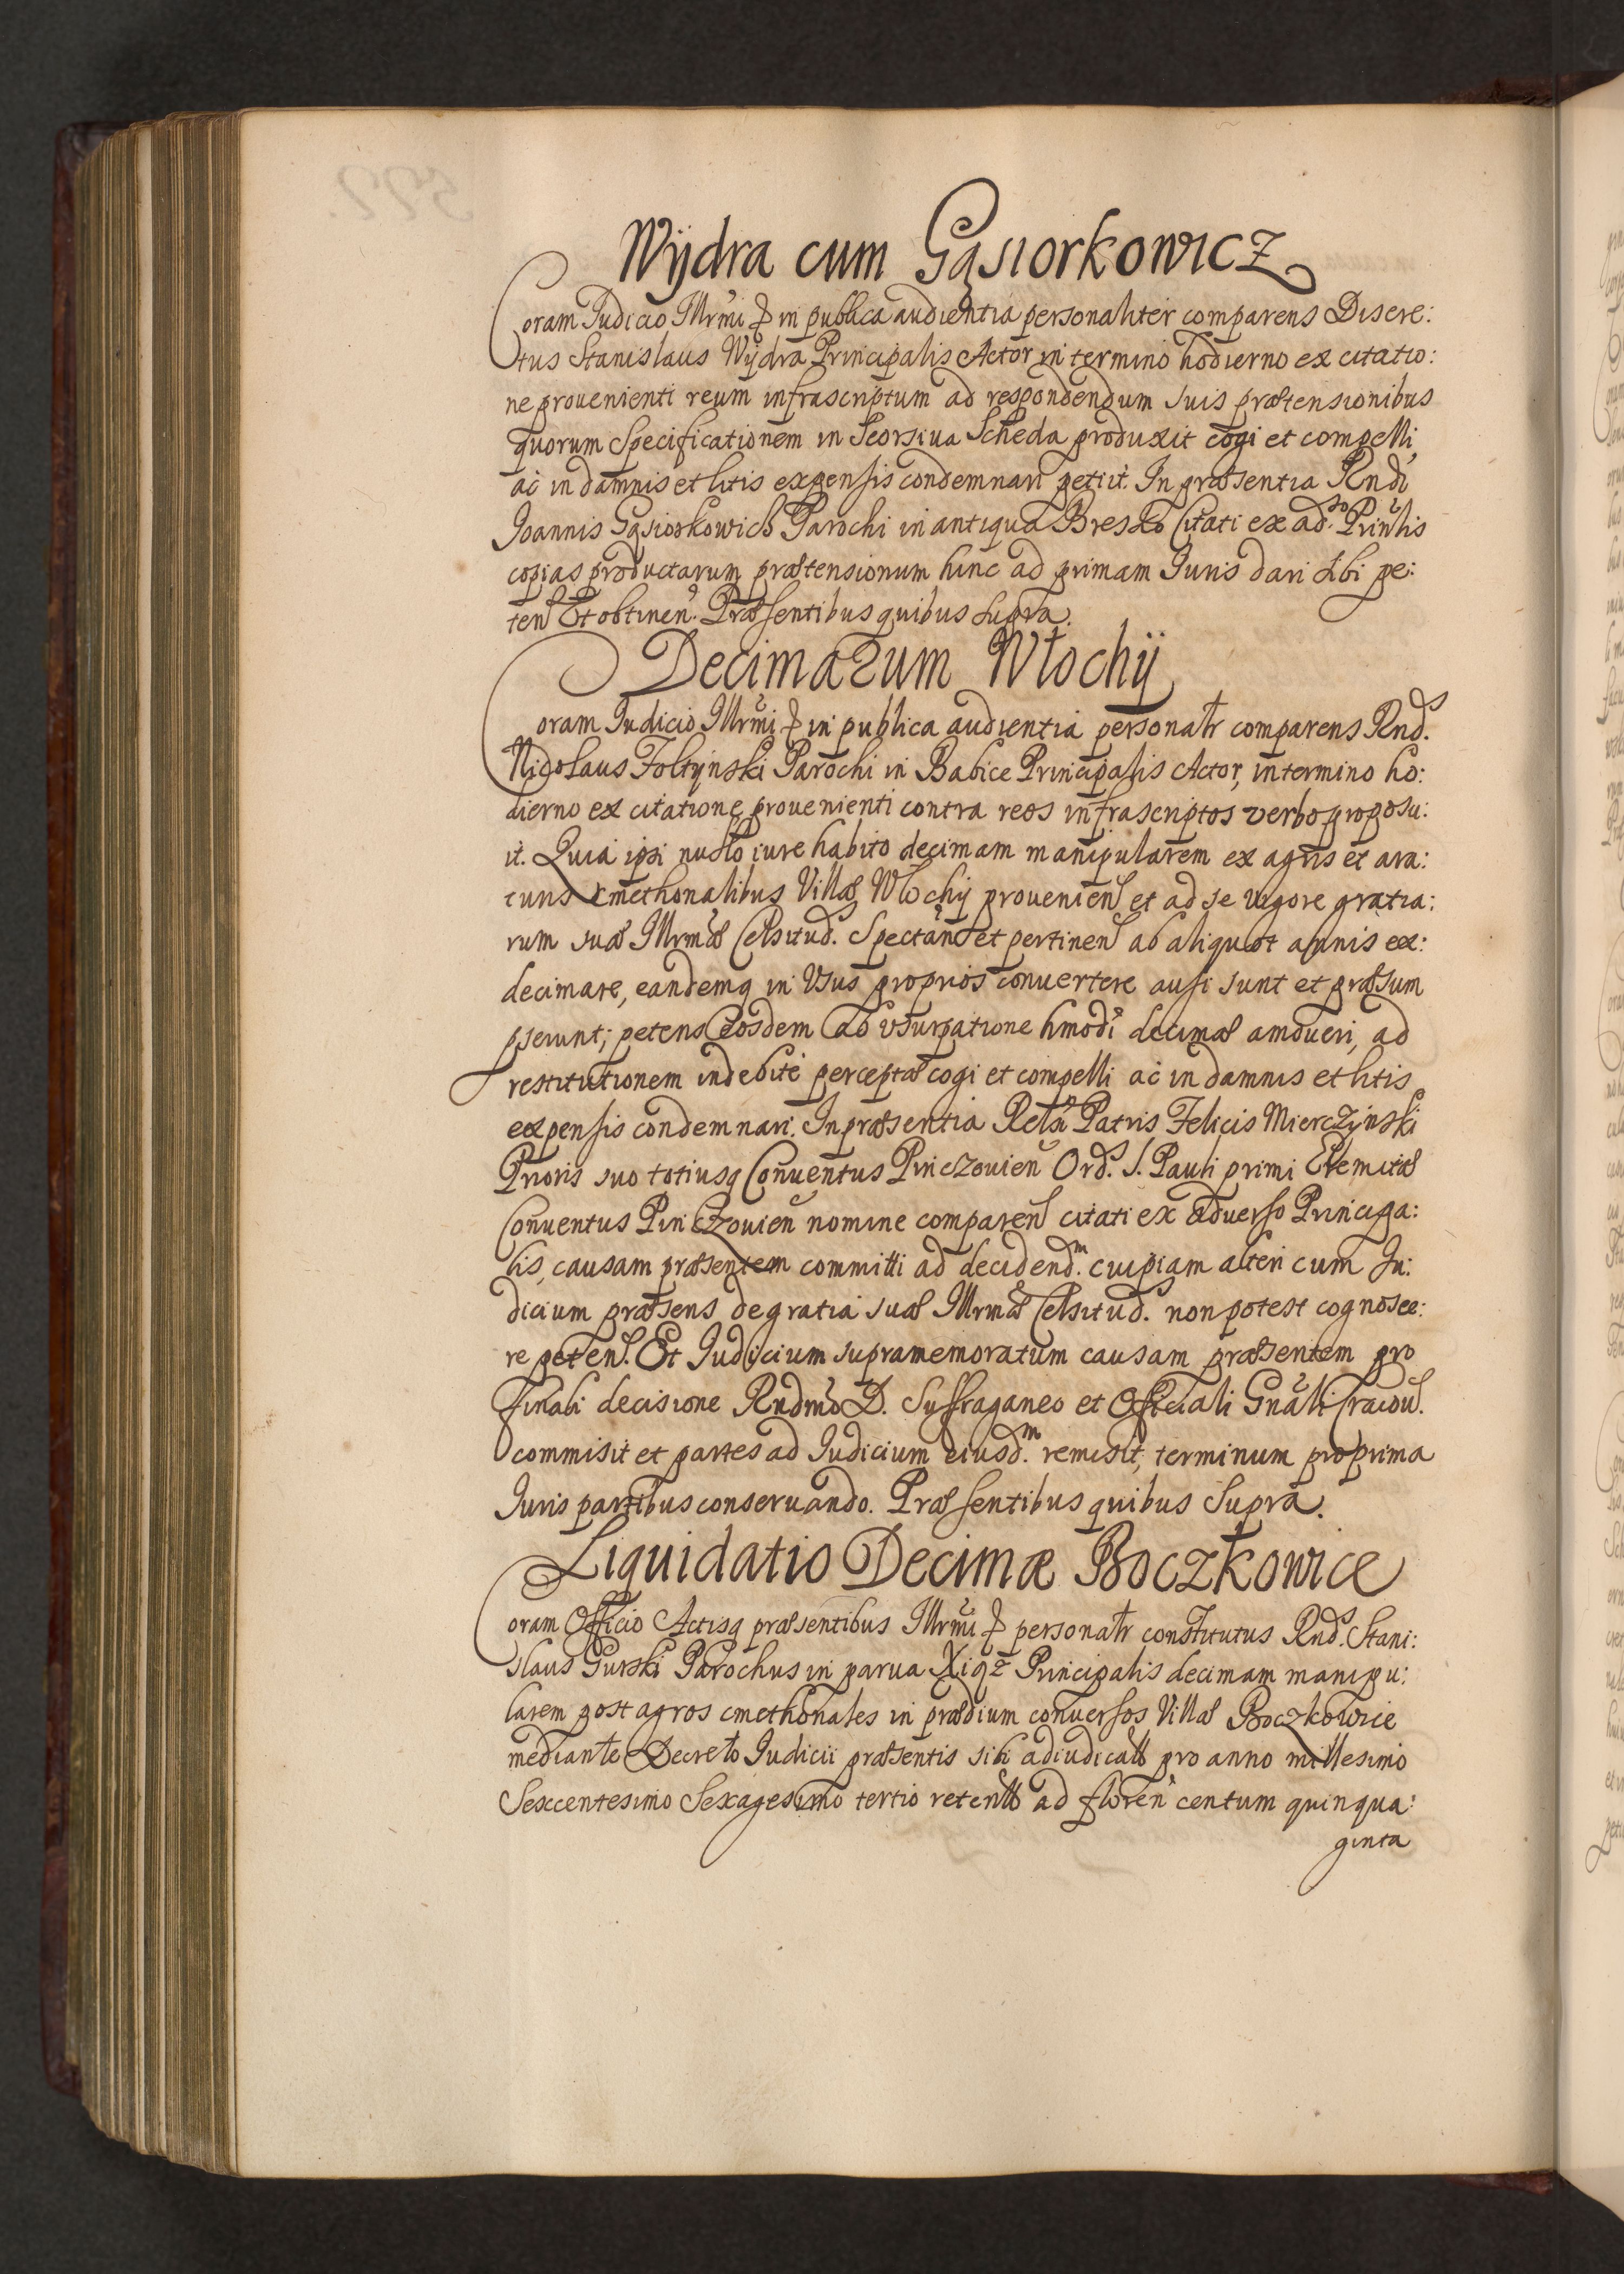 Wÿdra cum Gąsiorkowicz
Coram Iudicio Illrmi & in publica audientia personaliter comparens Discre:
tus Stanislaus Wÿdra Principalis Actor in termino hodierno ex citatio:
ne prouenienti reum infrascriptum ad respondendum suis prætensionibus
quorum Specificationem in Seorsiua Scheda produxit cogi et compelli,
ac in damnis et litis expensis condemnari petiit. In præsentia Rndi
Joannis Gąsiorkowicz Parochi in antiqua Bresko Citati ex ad.so Prinlis
copias productarum prætensionum hinc ad primam Iuris dari sibi pe:
ten Et obtinen. Præsentibus quibus supra.
Decimarum Włochÿ
Coram Iudicio Illrmi & in publica audientia personalr comparens Rnd.s
Nicolaus Foltÿnski Parochi in Babice Principalis Actor, in termino ho:
dierno ex citatione prouenienti contra reos infrascriptos verbo proposu:
it. Quia ipsi nullo iure habito decimam manipularem ex agris et ara:
turis Cmethonalibus Villæ Włochÿ prouenien et ad se vigore gratia:
rum suæ Illrmæ Celsitud. Spectan et pertinen ab aliquot annis ex:
decimare, eandemq in Vsus proprios conuertere ausi sunt et præsum
pserunt; petens Eosdem ab vsurpatione hmodi decimæ amoueri, ad
restitutionem indebite perceptæ cogi et compelli ac in damnis et litis
expensis condemnari. In præsentia Relsi Patris Felicis Mierczÿnski
Prioris suo totiusq Conuentus Pinczouien Ord. S. Pauli primi Eremitæ
Conuentus Pin Czouien nomine comparen citati ex aduerso Principa:
lis, causam præsentem committi ad decidend.m cuipiam alteri cum Ju:
dicium præsens de gratia suæ Illrmæ Celsitud. non potest cognosce:
re peten. Et Iudicium supramemoratum causam præsentem pro
finali decisione Rndmo D. Suffraganeo et Officiali Gnali Cracou.
commisit et partes ad Iudicium eiusd.m remisit, terminum pro prima
Iuris partibus conseruando. Præsentibus quibus Supra.
Liquidatio Decimæ Boczkowice
Coram Officio Actisq præsentibus Illrmi & personalr constitutus Rnd.s Stani:
slaus Gurski Parochus in parua Xiąz Principalis decimam manipu:
larem post agros cmethonales in prædium conuersos Villæ Boczkowice
mediante Decreto Iudicii præsentis sibi adiudicatt pro anno millesimo
Sexcentesimo Sexagesimo tertio retentt ad floren centum quinqua:
ginta